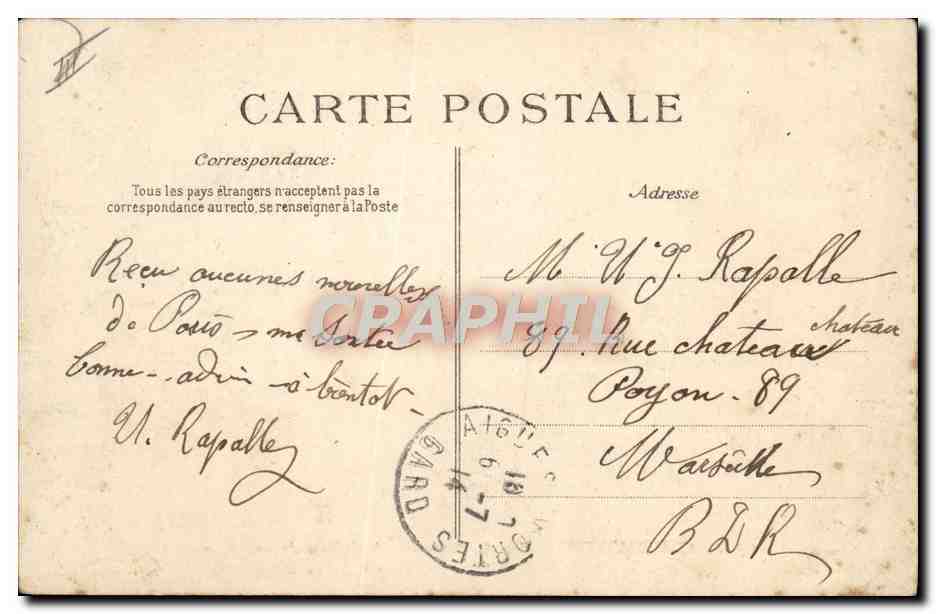 III
CARTE POSTALE
Correspondance:
Tous les pays étrangers n'acceptent pas la
correspondance au recto, se renseigner à la Poste
Reçu aucunes nouvelles
de
bonne - - à bientot -
U. Rapalle
Adresse
M. U. J. Rapalle
89. Rue chateau chateau
Poyon - 89
Marseille
B D R
AIGUES MORTES GARD
18
6 -7
14
CRAPHIL